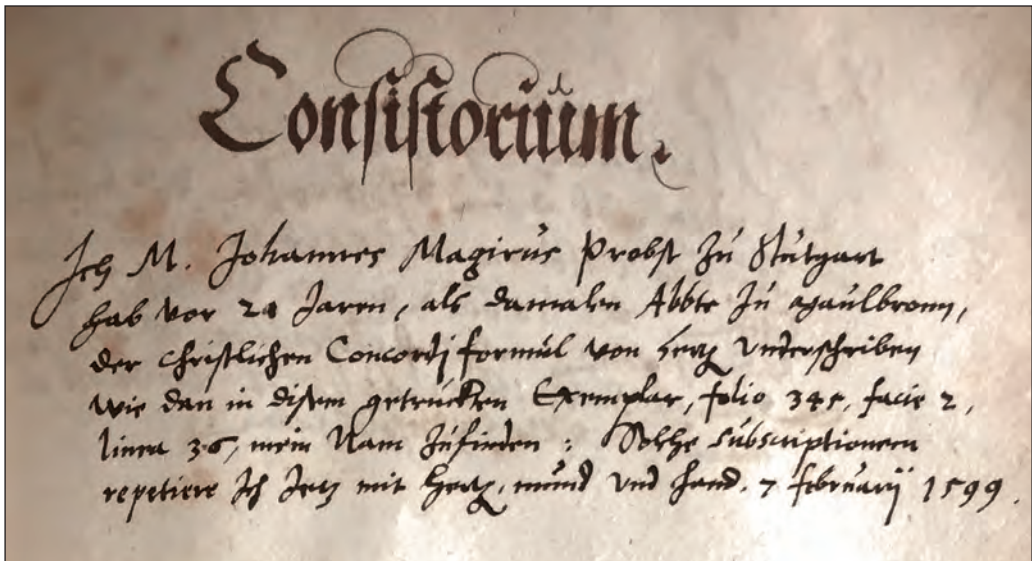 Consistorium.
Ich M. Johannes Magirus Probst zu Stutgart
hab vor 24 Jaren, als damalen Abbte zu Maulbronn,
der christlichen Concordj formul von hertz underschriben
wie dan in disem getruckten Exemplar, folio 345. facie 2,
linea 36, mein Nam zufinden: Solche subscriptionem
repetiere Ich Jetz mit hertz, mund und hand. 7 februarij 1599.